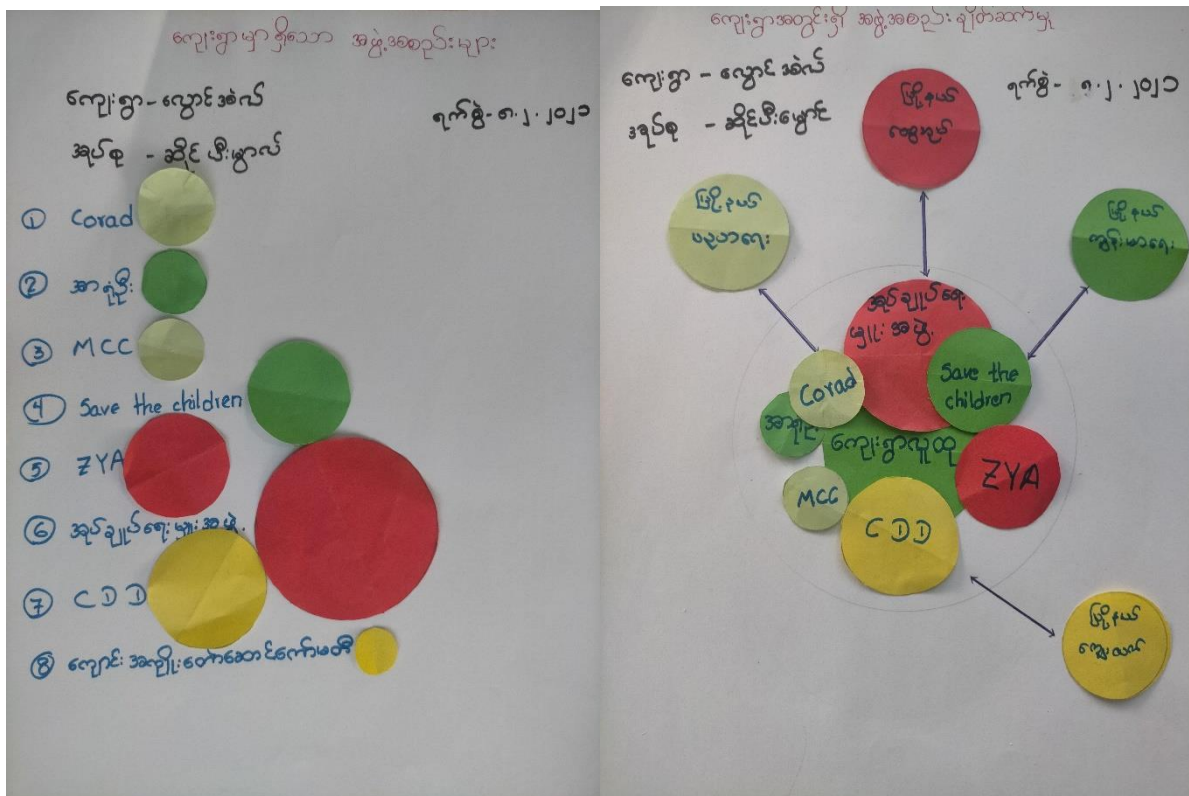 ကျေးရွာမှာရှိသော အဖွဲ့အစည်းများ
ကျေးရွာ - လွှောင်အဲလ်
ရက်စွဲ - ၈.၂.၂၀၂၁
အုပ်စု - ဆိုင်ဇီးမွာလ်
① Corad
② အာရုံဦး
③ MCC
④ Save the children
⑤ ZYA
⑥ အုပ်ချုပ်ရေးမှူးအဖွဲ့
⑦ CDD
⑧ ကျောင်းအကျိုးတော်ဆောင်ကော်မတီ
ကျေးရွာအတွင်းရှိ အဖွဲ့အစည်း ချိတ်ဆက်မှု
ကျေးရွာ - လွှောင်အဲလ်
ရက်စွဲ - ၈.၂.၂၀၂၁
အုပ်စု - ဆိုင်ဇီးမှောင်
မြို့နယ်
မြို့နယ်
ပညာရေး
မြို့နယ်
ကျန်းမာရေး
အုပ်ချုပ်ရေး
မှူးအဖွဲ့
Corad
Save the
children
ကျေးရွာလူထု
ZYA
MCC
CDD
မြို့နယ်
ကျေးလက်